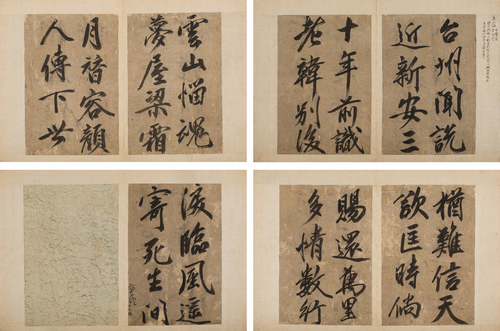 台州聞説
近新安三
十年前識
老韓别後
雲山惱魂
夢屋梁霜
月替容顔
人傳下世
猶難信天
欲匡時倘
賜還萬里
多情數行
淚臨風遥
寄死生間